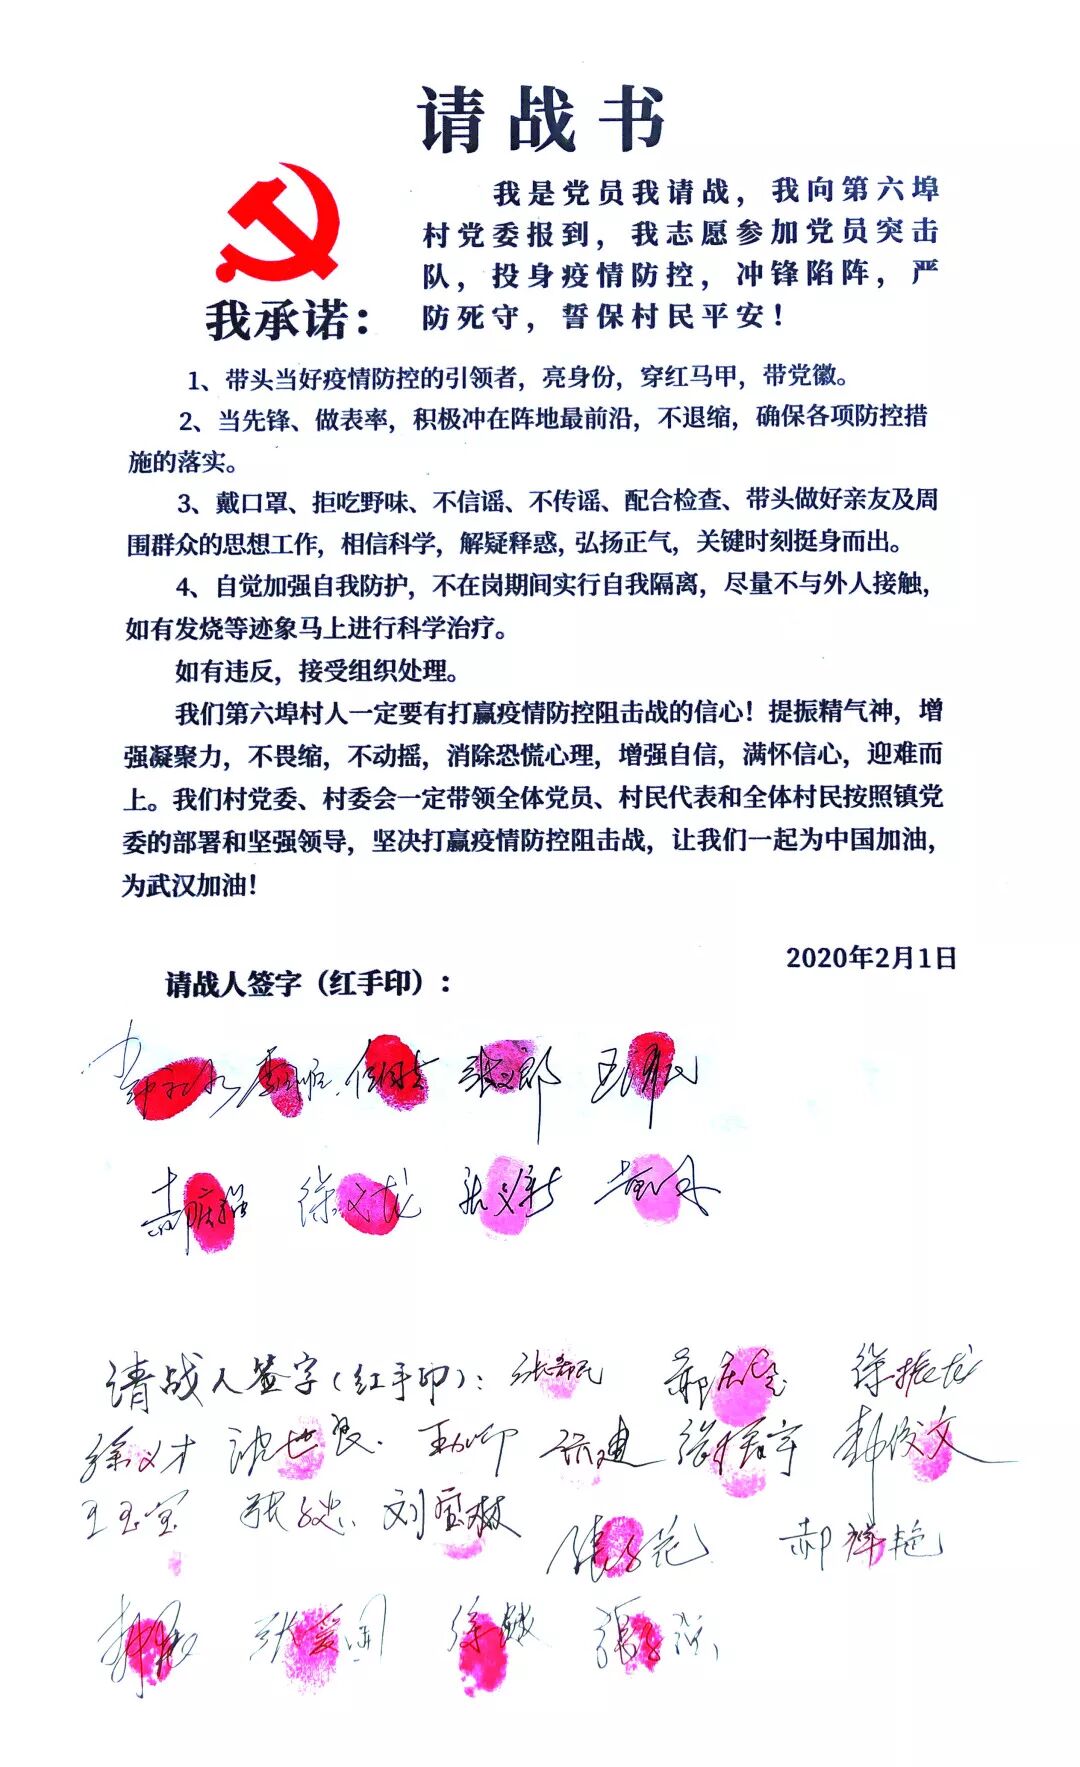 请战书
我是党员我请战，我向第六埠
村党委报到，我志愿参加党员突击
队，投身疫情防控，冲锋陷阵，严
防死守，誓保村民平安！
我承诺：
1、带头当好疫情防控的引领者，亮身份，穿红马甲，带党徽。
2、当先锋、做表率，积极冲在阵地最前沿，不退缩，确保各项防控措
施的落实。
3、戴口罩、拒吃野味、不信谣、不传谣、配合检查、带头做好亲友及周
围群众的思想工作，相信科学，解疑释惑，弘扬正气，关键时刻挺身而出。
4、自觉加强自我防护，不在岗期间实行自我隔离，尽量不与外人接触，
如有发烧等迹象马上进行科学治疗。
如有违反，接受组织处理。
我们第六埠村人一定要有打赢疫情防控阻击战的信心！提振精气神，增
强凝聚力，不畏缩，不动摇，消除恐慌心理，增强自信，满怀信心，迎难而
上。我们村党委、村委会一定带领全体党员、村民代表和全体村民按照镇党
委的部署和坚强领导，坚决打赢疫情防控阻击战，让我们一起为中国加油，
为武汉加油！
2020年2月1日
请战人签字（红手印）：
徐文龙
请战人签字（红手印）： 徐振龙
徐义才 郝俊文
王玉宝 刘宝林 郝祥艳
张爱国